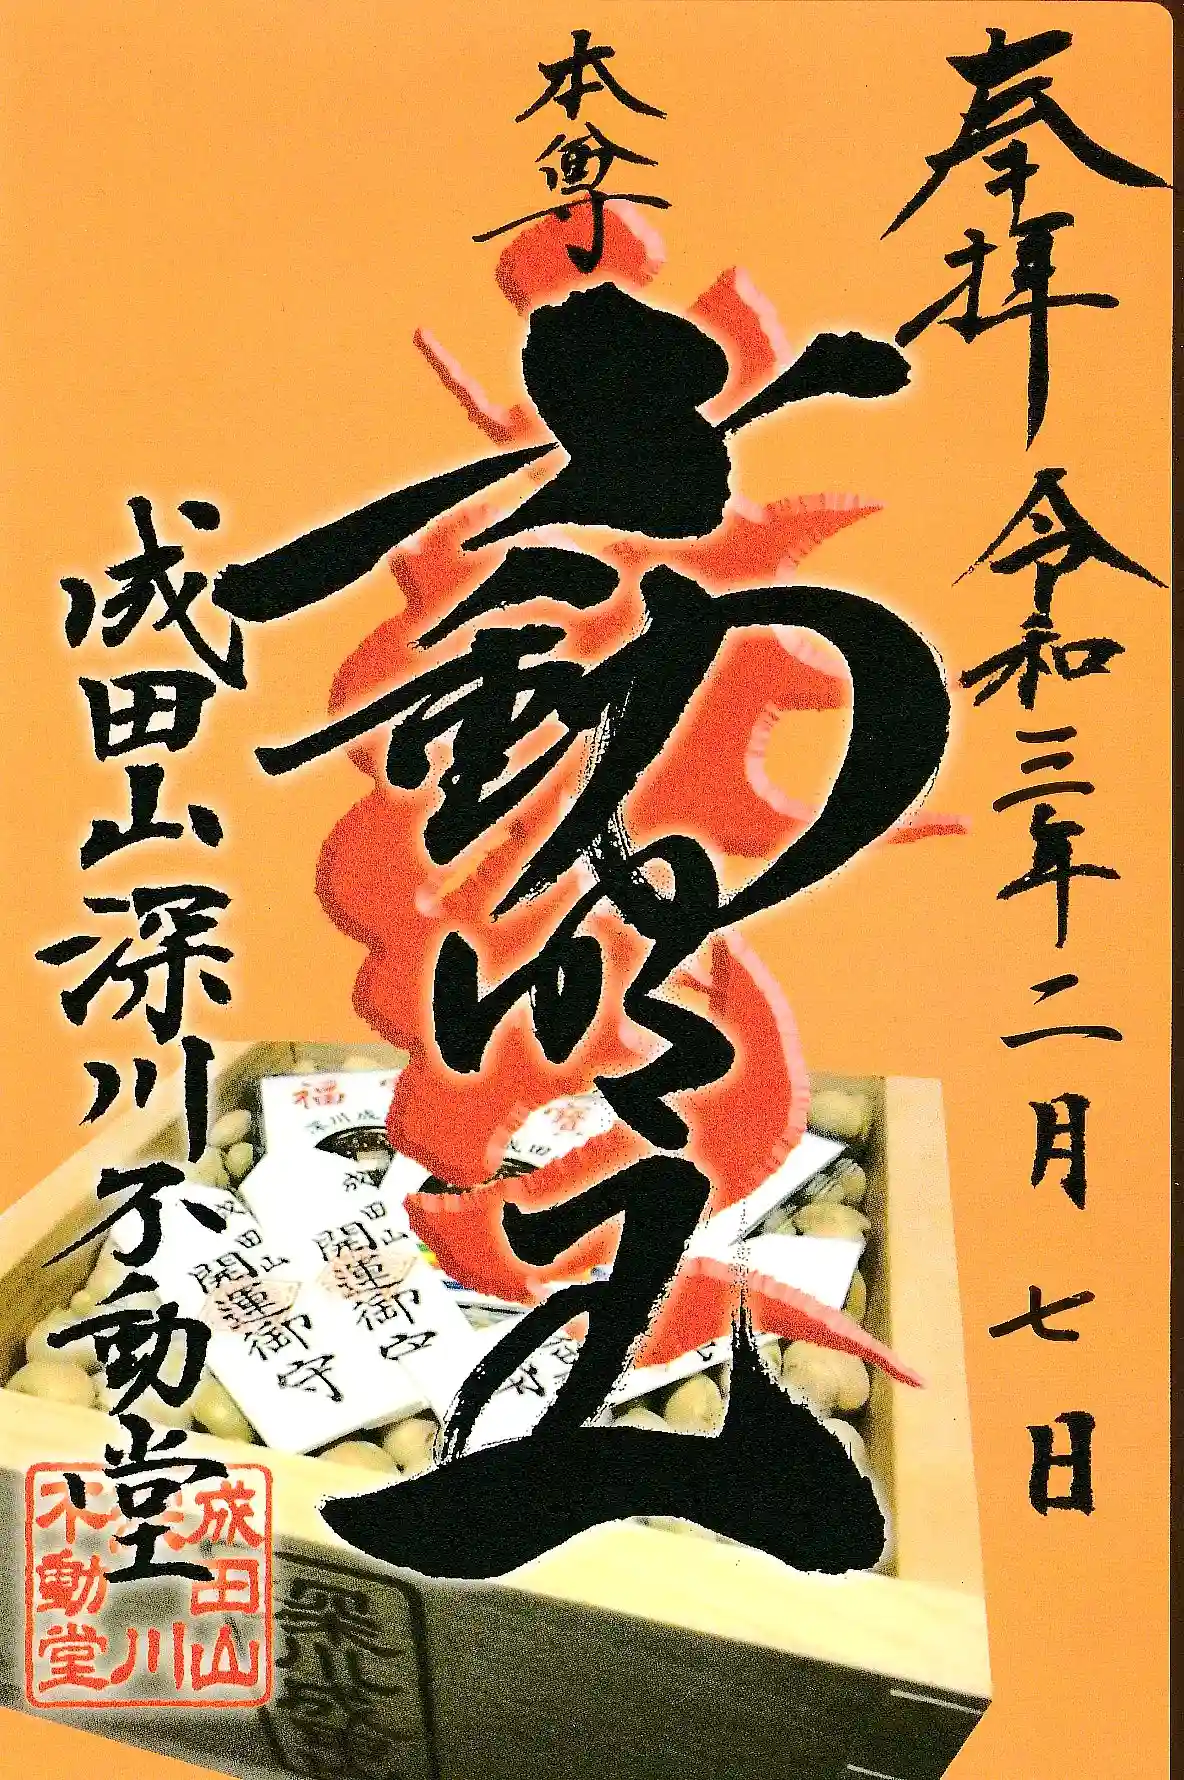 奉拝
令和三年二月七日
本尊
不動明王
成田山深川不動堂
成田山
深川
不動堂
福
深川成
成田山
開運御守
成田山
開運御守